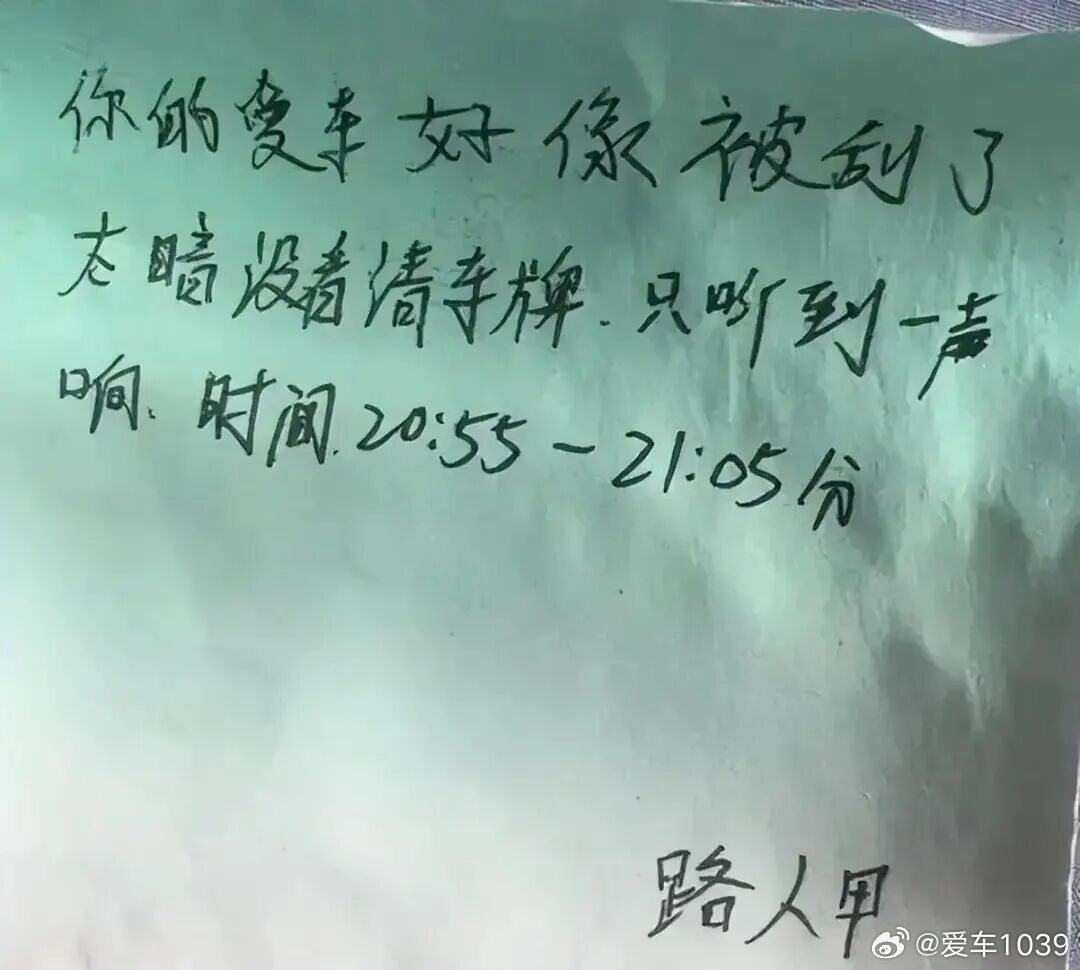 你的爱车好像被刮了
太暗没看清车牌.只听到一声
响.时间.20:55-21:05分
路人甲
@爱车1039